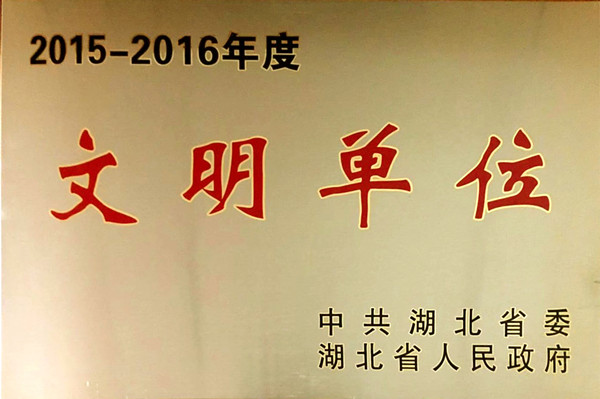 2015-2016年度
文明单位
中共湖北省委
湖北省人民政府